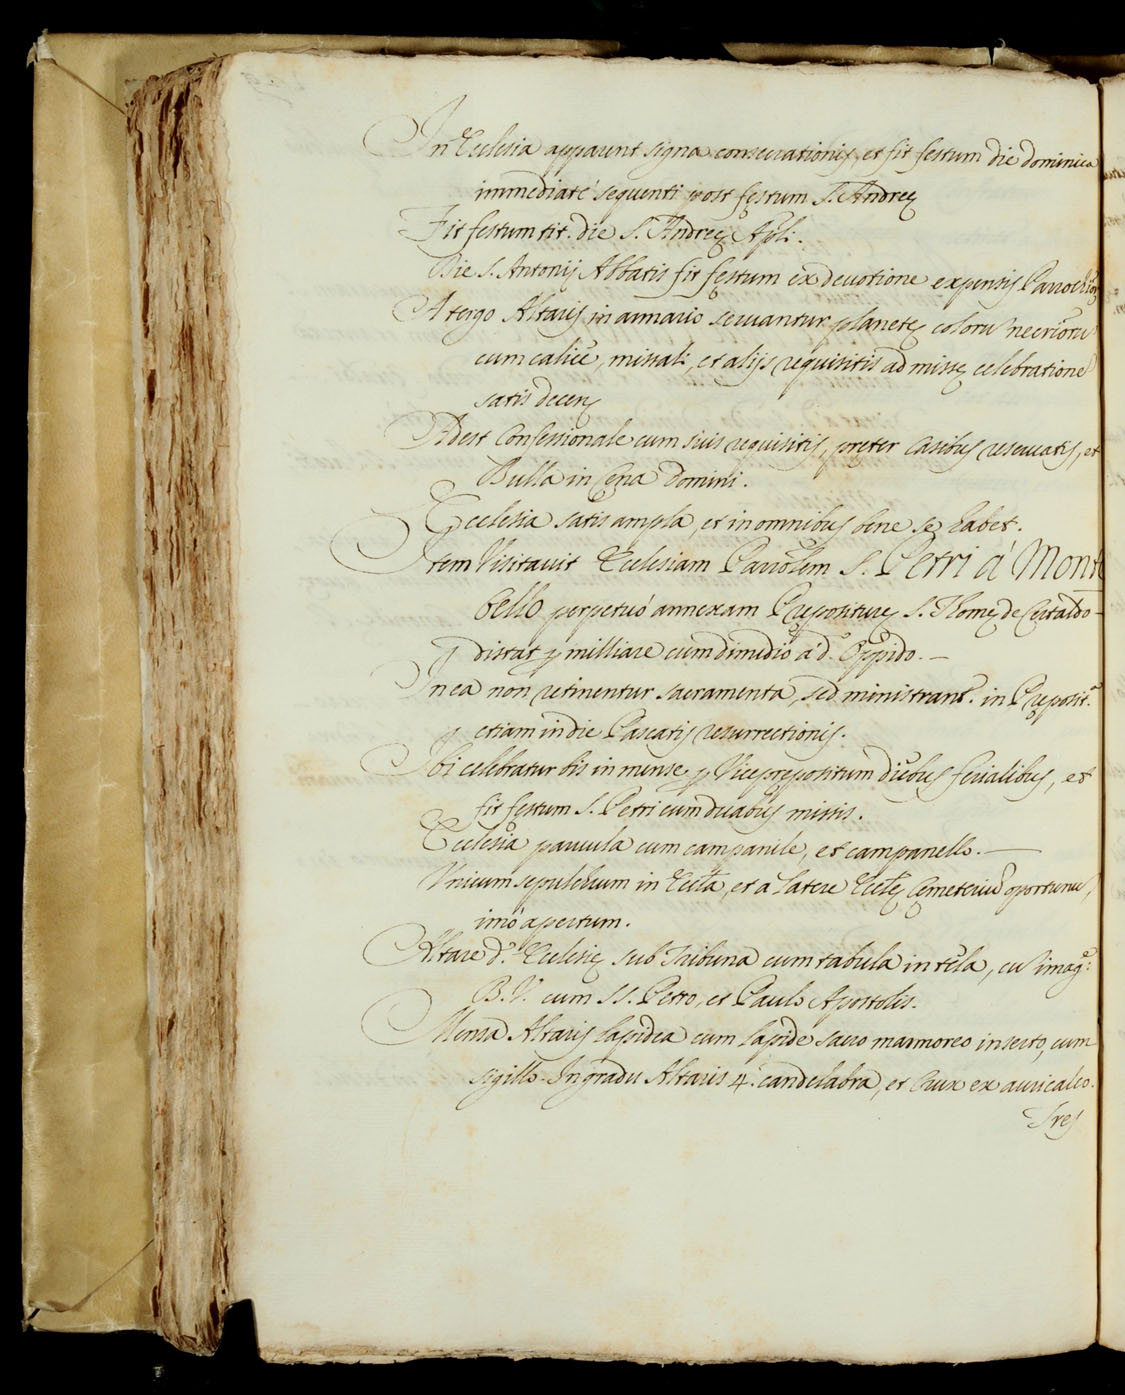 In Ecclesia apparent signa consecrationis, et fit festum die dominica
immediatè sequenti post festum S. Andreę
Fit festum tit. die S. Andreę Apli.
Die S. Antonij Abbatis fit festum ex devotione expensis
A tergo Altaris in armario servantur planetę coloru necriorũ
cum calicè, missali, et alijs requisitis ad missę celebratione
satis decen
Adest Confessionale cum suis requisitis, preter Casibus reservatis, et
Bulla in Cena Domini.
Ecclesia satis ampla, et in omnibus bene se habet.
Item Visitavit Ecclesiam Parrolem S. Petri à Mont
bello perpetuò annexam Prepositurę S. Thomę de Certaldo
distat p milliare cum dimidio à d.º Oppido.
In ea non retinentur sacramenta, sed ministrant.r in Preposit.ª
etiam in die Pascatis resurrectionis.
Ibi celebratur bis in mense p Viceprepositum diebus ferialibus, et
fit festum S. Petri cum duabus missis.
Ecclesia parvula cum campanile, et campanello.
Unicum sepulchrum in Eccla, et a latere Ecclę Cemeteriũ oportunu,
imò apertum.
Altare d.ę Ecclesię sub Tribuna cum tabula in tela, cu imag.e
B. V. cum SS. Petro, et Paulo Apostolis.
Mensa Altaris lapidea cum lapide sacro marmoreo inserto, cum
sigillo. In gradu Altaris 4. candelabra, et Crux ex auricalco.
Tres